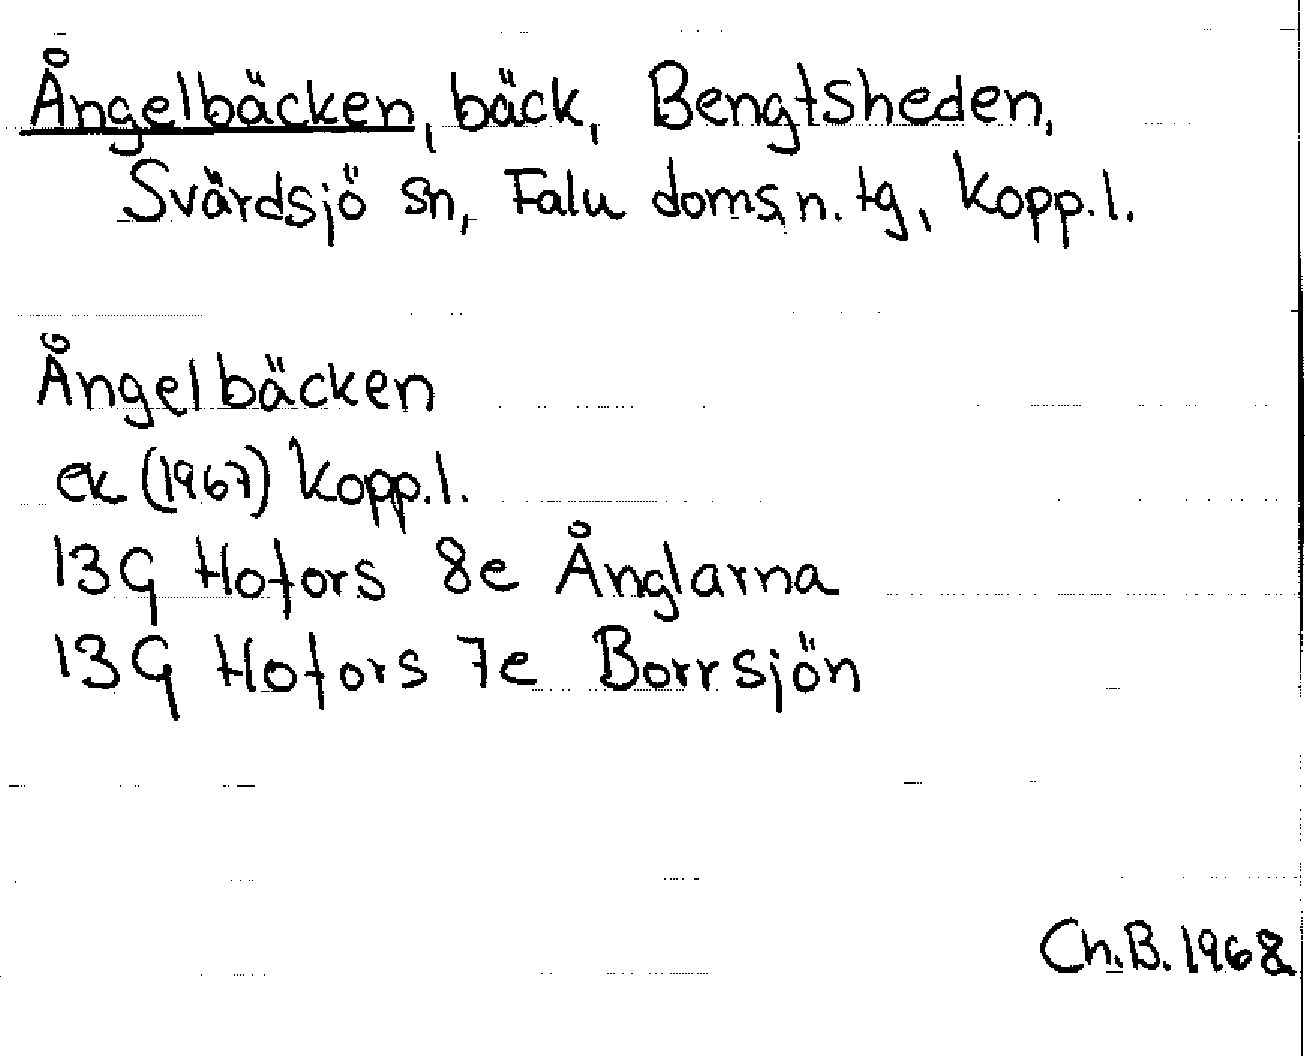 Ångelbäcken, bäck, Bengtsheden,
Svärdsjö sn, Falu doms.n. tg, Kopp.l.
Ångelbäcken
ek (1967) Kopp.l.
13G Hofors 8e Ånglarna
13G Hofors 7e Borrsjön
Ch.B. 1968